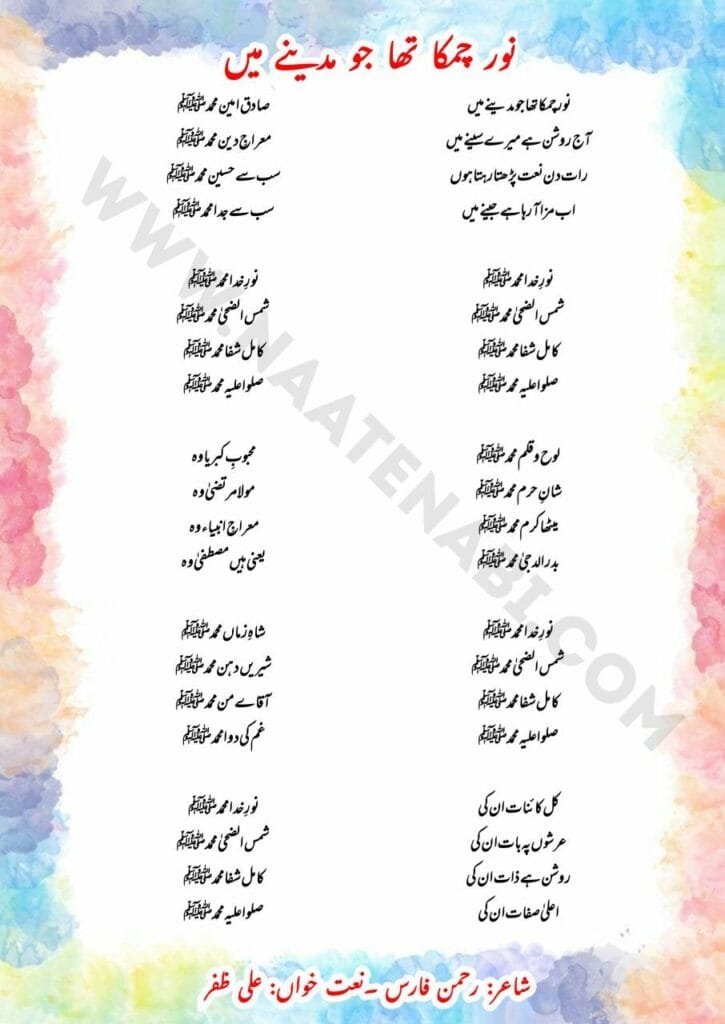 نور چمکا تھا جو مدینے میں
نور چمکا تھا جو مدینے میں
آج روشن ہے میرے سینے میں
رات دن نعت پڑھتا رہتا ہوں
اب مزا آ رہا ہے جینے میں
نورِ خدا محمد ﷺ
شمس الضحیٰ محمد ﷺ
کامل شفا محمد ﷺ
صلو علیہ محمد ﷺ
لوح و قلم محمد ﷺ
شانِ حرم محمد ﷺ
میٹھا کرم محمد ﷺ
بدر الدجیٰ محمد ﷺ
نورِ خدا محمد ﷺ
شمس الضحیٰ محمد ﷺ
کامل شفا محمد ﷺ
صلو علیہ محمد ﷺ
کل کائنات ان کی
عرشوں پہ بات ان کی
روشن ہے ذات ان کی
اعلیٰ صفات ان کی
صادق امین محمد ﷺ
معراجِ دین محمد ﷺ
سب سے حسین محمد ﷺ
سب سے جدا محمد ﷺ
نورِ خدا محمد ﷺ
شمس الضحیٰ محمد ﷺ
کامل شفا محمد ﷺ
صلو علیہ محمد ﷺ
محبوبِ کبریا وہ
مولا مرتضیٰ وہ
معراجِ انبیاء وہ
یعنی ہیں مصطفیٰ وہ
شاہِ زماں محمد ﷺ
شیریں دہن محمد ﷺ
آقاے من محمد ﷺ
غم کی دوا محمد ﷺ
نورِ خدا محمد ﷺ
شمس الضحیٰ محمد ﷺ
کامل شفا محمد ﷺ
صلو علیہ محمد ﷺ
شاعر: رحمن فارس ۔نعت خواں: علی ظفر
WWW.NAATENABI.COM